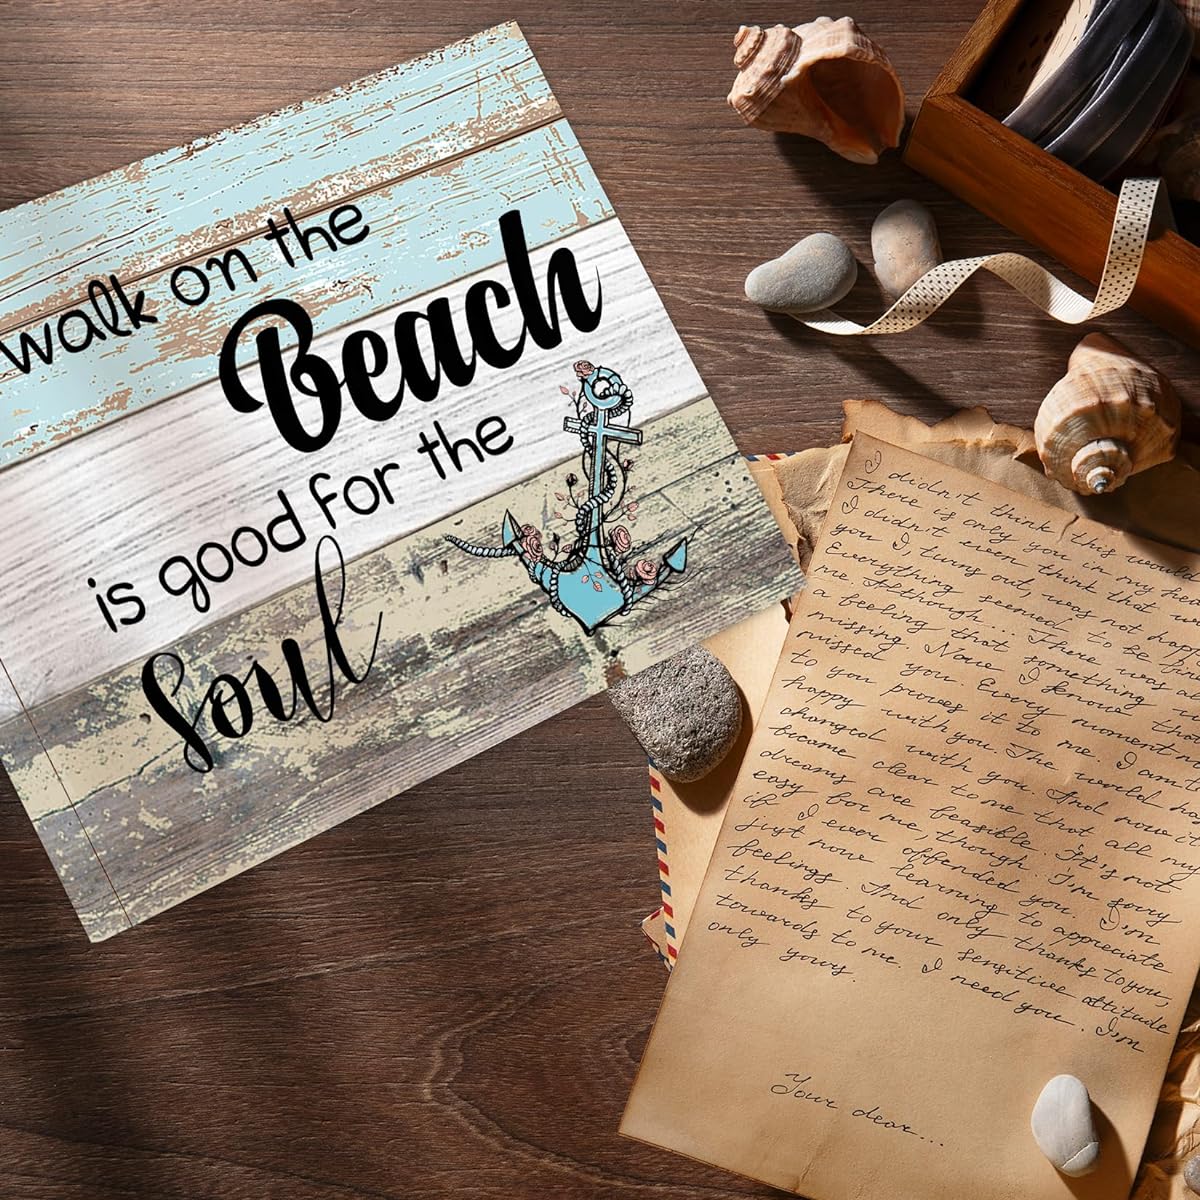 walk on the
Beach
is good for the
Soul
I didn't think this would
There is only you in my
I didn't even think that
you I, turns out, was not happy
Everything seemed to be
me. Although... There was
a feeling that something
missing. Now I know
missed you. Every moment
to you proves it to me. I am
happy with you. The world has
changed with you. And now it
became clear to me that all my
dreams are feasible. It's not
easy for me, though. I'm sorry
if I ever offended you. I'm
just now learning to appreciate
feelings. And only thanks to you,
thanks to your sensitive attitude
towards to me. I need you. I'm
only yours.
Your dear...